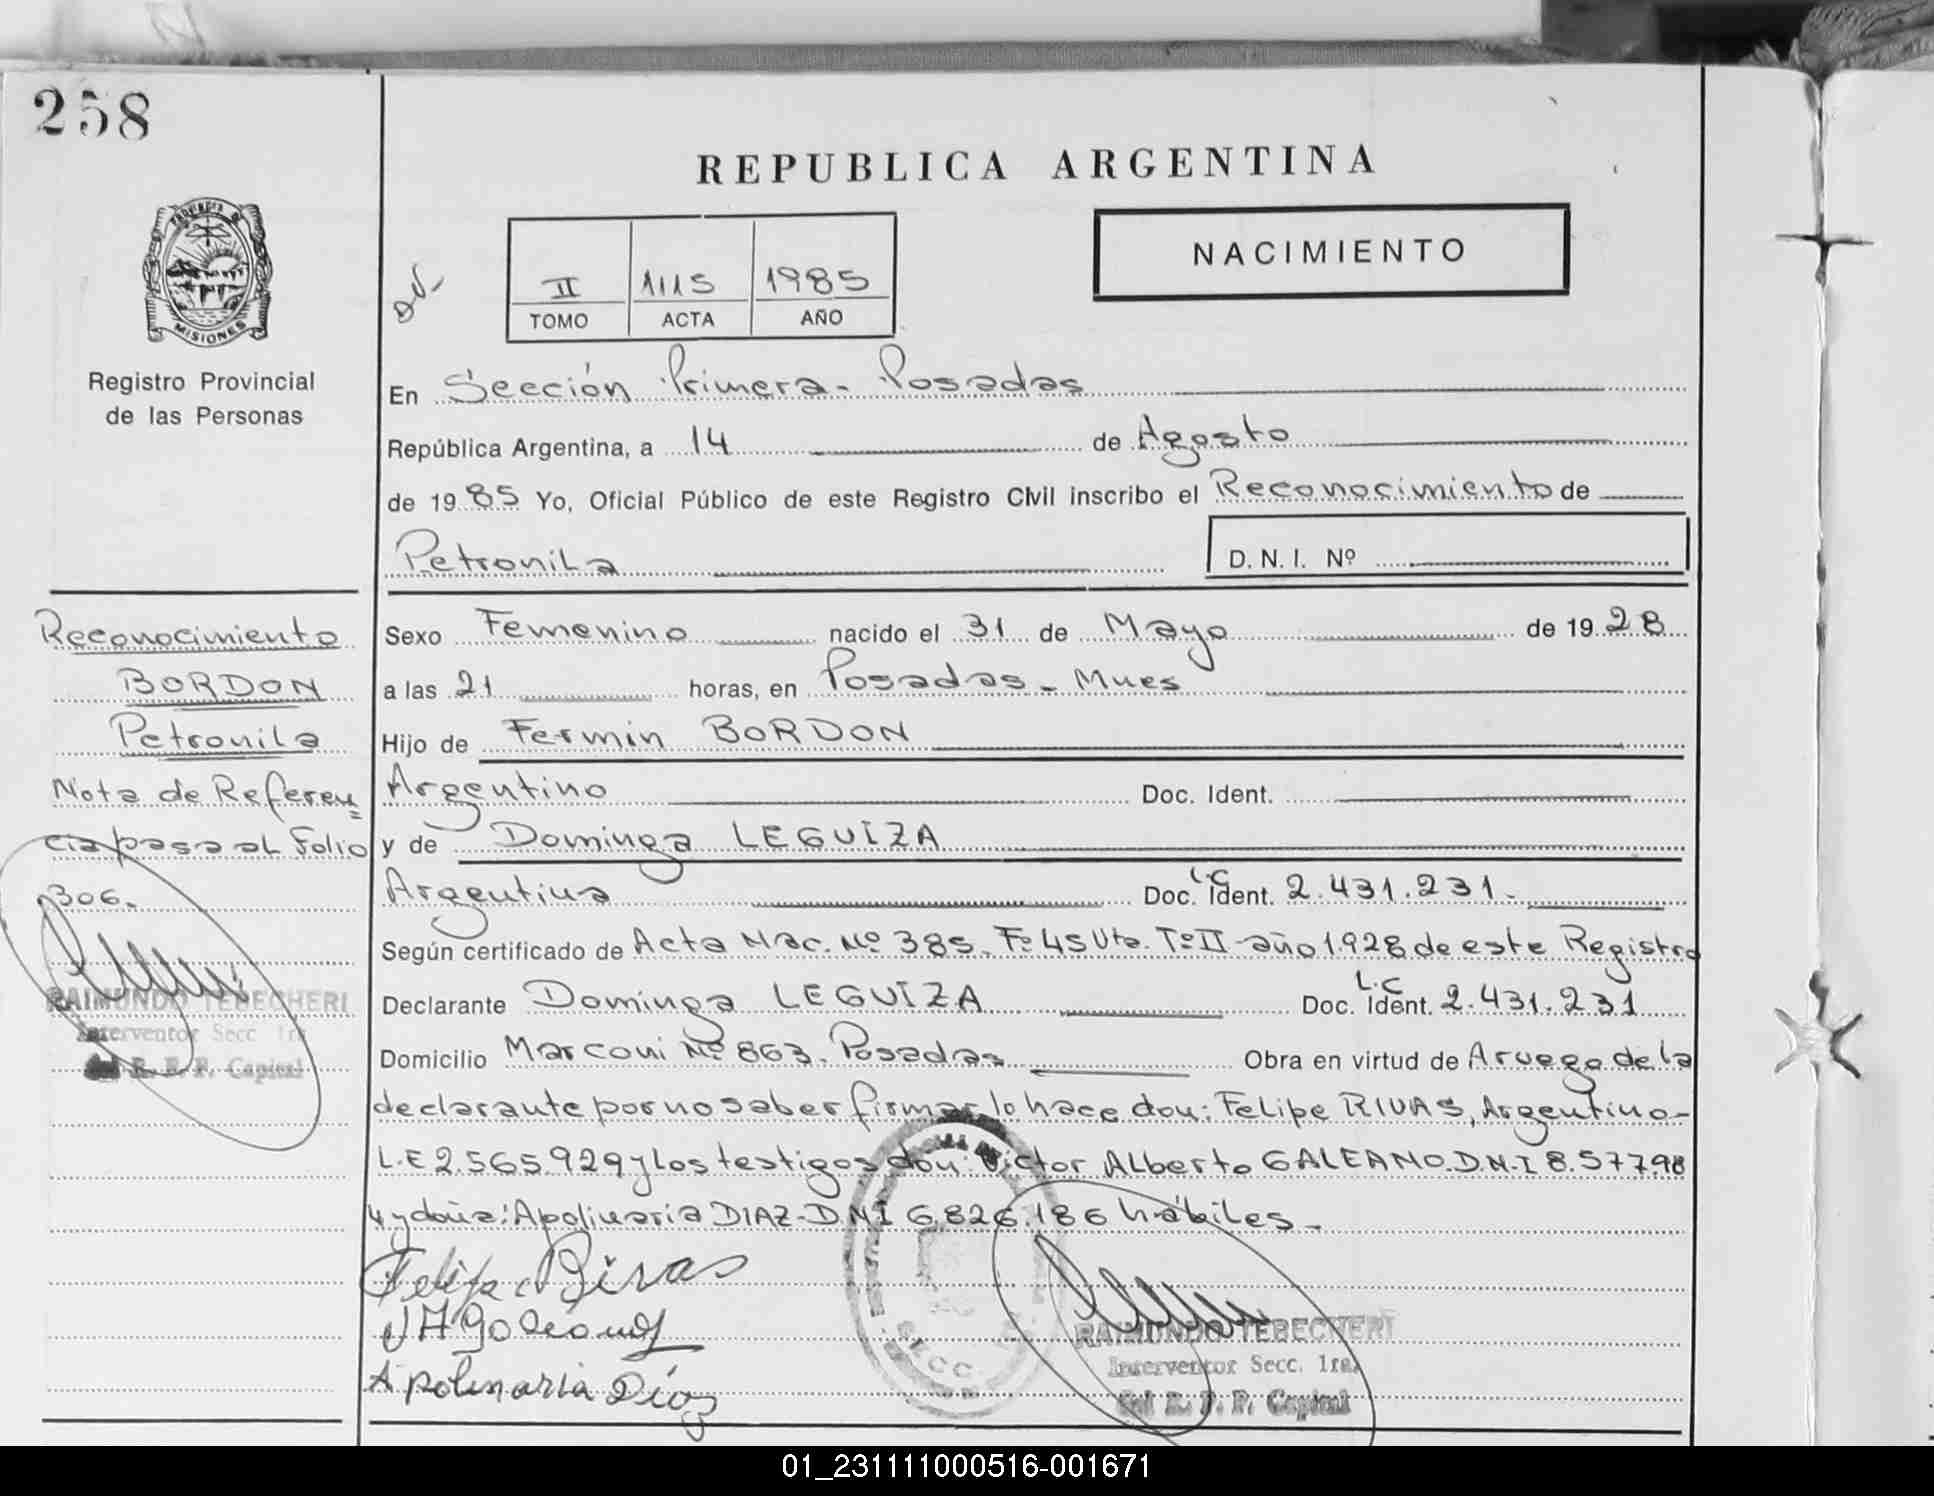 258
REPUBLICA ARGENTINA
NACIMIENTO
II 1115 1985
TOMO ACTA AÑO
MISIONES
Registro Provincial
de las Personas
En Sección Primera - Posadas
República Argentina, a 14 de Agosto
de 1985 Yo, Oficial Público de este Registro Civil inscribo el Reconocimiento de
Petronila D. N. I. Nº
Sexo Femenino nacido el 31 de Mayo de 1928
a las 21 horas, en Posadas - Mnes
Hijo de Fermin BORDON
Argentino Doc. Ident.
y de Dominga LEGUIZA
Argentina L.C Doc. Ident. 2.431.231.-
Según certificado de Acta Nac. Nº 385. Fº 45 Vta. Tº II - año 1.928 de este Registro
Declarante Dominga LEGUIZA L.C Doc. Ident. 2.431.231
Domicilio Marconi Nº 863. Posadas Obra en virtud de A ruego de la
declarante por no saber firmar lo hace don: Felipe RIVAS, Argentino-
L.E 2.565.929 y los testigos don: Victor Alberto GALEANO. D.N.I 8.577.98
4 y doña: Apolinaria DIAZ - D.N.I 6.826.186 hábiles.-
Reconocimiento
BORDON
Petronila
Nota de Referen
cia pasa al Folio
306.
RAIMUNDO TEBECHERI
Interventor Secc 1ra
R. P. P. Capital
Felipe Rivas
VAGaleano
Apolinaria Díaz
SECC.
RAIMUNDO TEBECHERI
Interventor Secc. 1ra.
del R. P. P. Capital
01_231111000516-001671